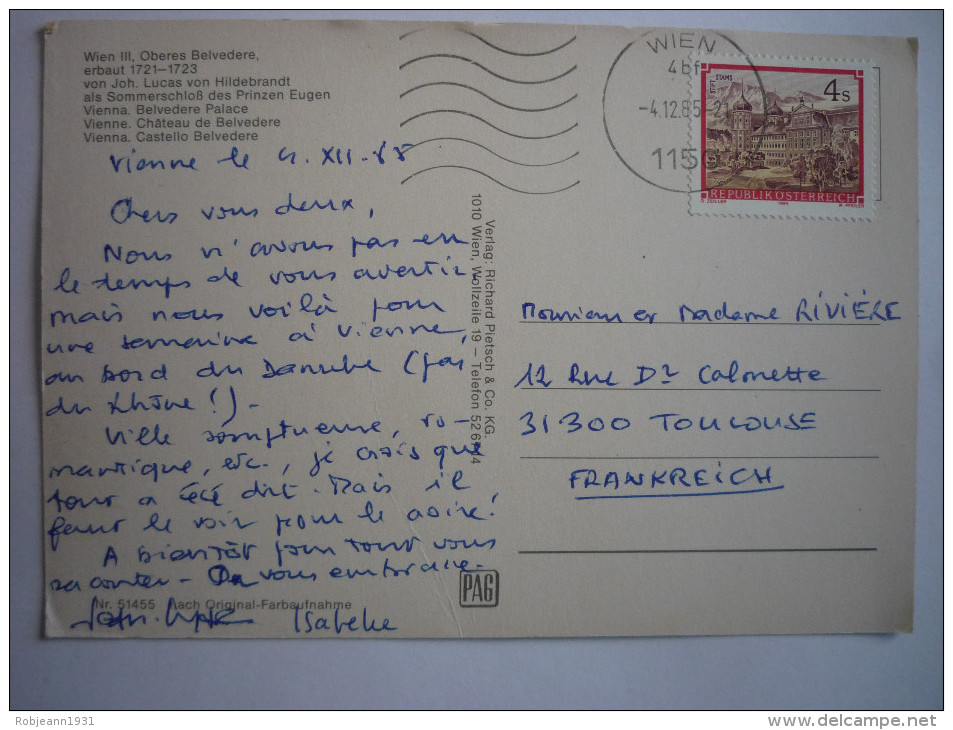 Wien III, Oberes Belvedere,
erbaut 1721–1723
von Joh. Lucas von Hildebrandt
als Sommerschloß des Prinzen Eugen
Vienna. Belvedere Palace
Vienne. Château de Belvedere
Vienna. Castello Belvedere
Vienne le 4.XII.85
Chers vous deux,
Nous n'avons pas eu
le temps de vous avertir,
mais nous voilà pour
une semaine à Vienne,
au bord du Danube (pas
du Rhône!) -
Ville somptueuse, ro-
mantique, etc., je crois que
tout a été dit. Mais il
faut le voir pour le croire!
A bientôt pour tout vous
raconter - On vous embrasse.
Isabelle
Nr. 51455 nach Original-Farbaufnahme
Verlag: Richard Pietsch & Co. KG.
1010 Wien, Wollzeile 19 – Telefon 52 6
PAG
WIEN
-4.12.85-21
1150
STIFT STAMS
4s
REPUBLIK ÖSTERREICH
Monsieur et Madame RIVIÈRE
12 Rue Dr Calmette
31.300 TOULOUSE
FRANKREICH
Robjeann1931
delcampe.net